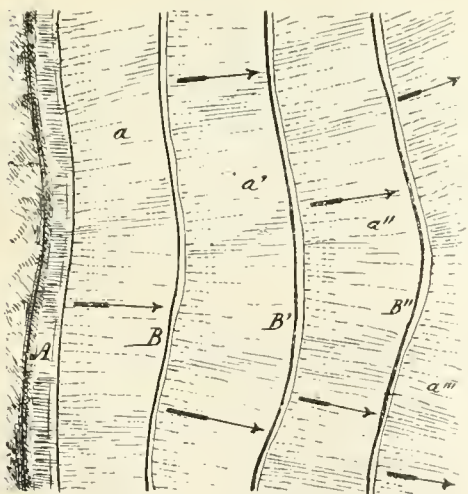 a
a'
a''
A
B
B'
B''
a'''